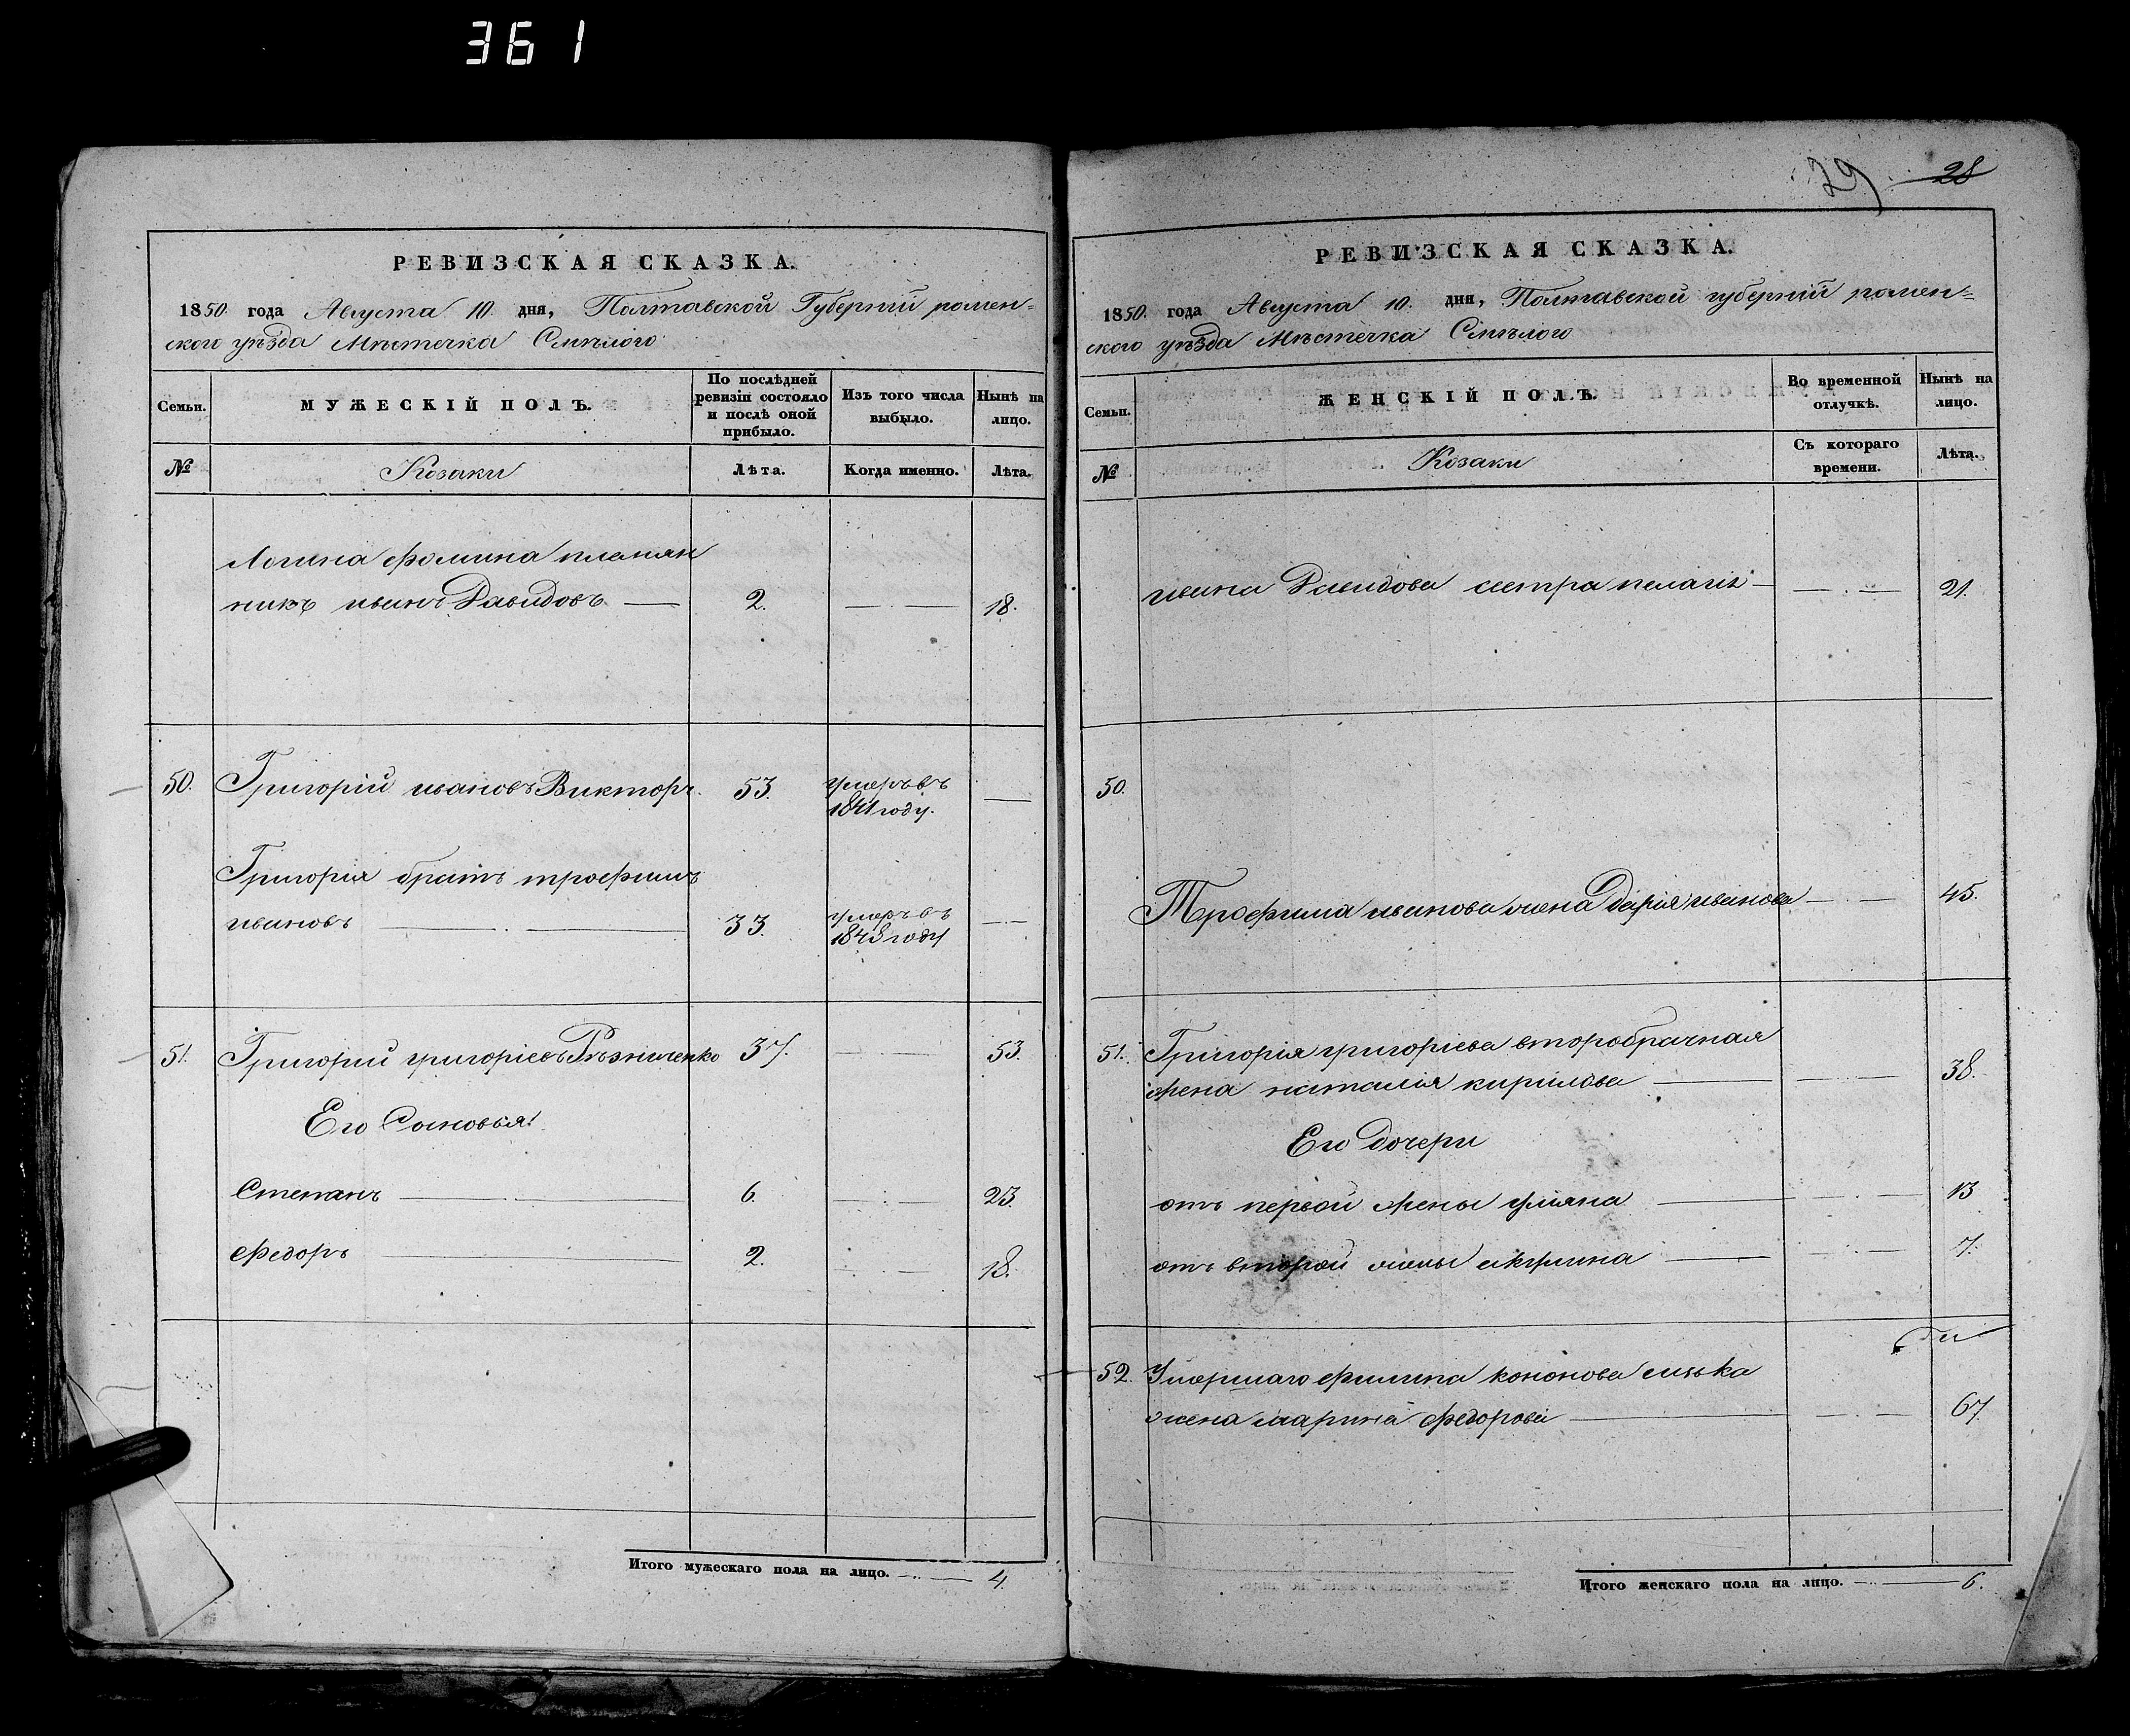 361
РЕВИЗСКАЯ СКАЗКА.
1850. года Августа 10. дня, Полтавской Губерніи ромен=
ского уѣзда Мѣстечка Смѣлого
Семьи.
МУЖЕСКІЙ ПОЛЪ.
По послѣдней
ревизіи состояло
и послѣ оной
прибыло.
Изъ того числа
выбыло.
Нынѣ на
лицо.
№
Козаки
Лѣта.
Когда именно.
Лѣта.
Логина фомина племян
никъ иванъ Давидовъ — 2. — 18.
50. Григорій ивановъ Викторъ. 53. умеръ въ —
1841 году.
Григорія братъ трофимъ
ивановъ — 33. умеръ въ —
1843 году
51. Григорий григоріевъ Рѣзниченко 37. — 53.
Его Сыновья
Степанъ — 6. — 23.
Федоръ — 2. — 18.
Итого мужескаго пола на лицо. — 4.
29 28
РЕВИЗСКАЯ СКАЗКА.
1850. года Августа 10. дня, Полтавской губерніи ромен=
ского уѣзда Мѣстечка Смѣлого
Семьи.
ЖЕНСКІЙ ПОЛЪ.
Во временной
отлучкѣ.
Нынѣ на
лицо.
№
Козаки
Съ котораго
времени.
Лѣта.
ивана Давидова сестра пелагія — — 21.
50.
Трофима иванова жена Дарія иванова — 45.
51. Григорія григоріева второбрачная
жена наталія кирилова — — 38.
Его Дочери
отъ первой жены уліяна — — 13
отъ второй жены акулина — — 7.
52. Умершаго филипа кононова
жена марина федорова — — 67.
Итого женскаго пола на лицо. — 6.